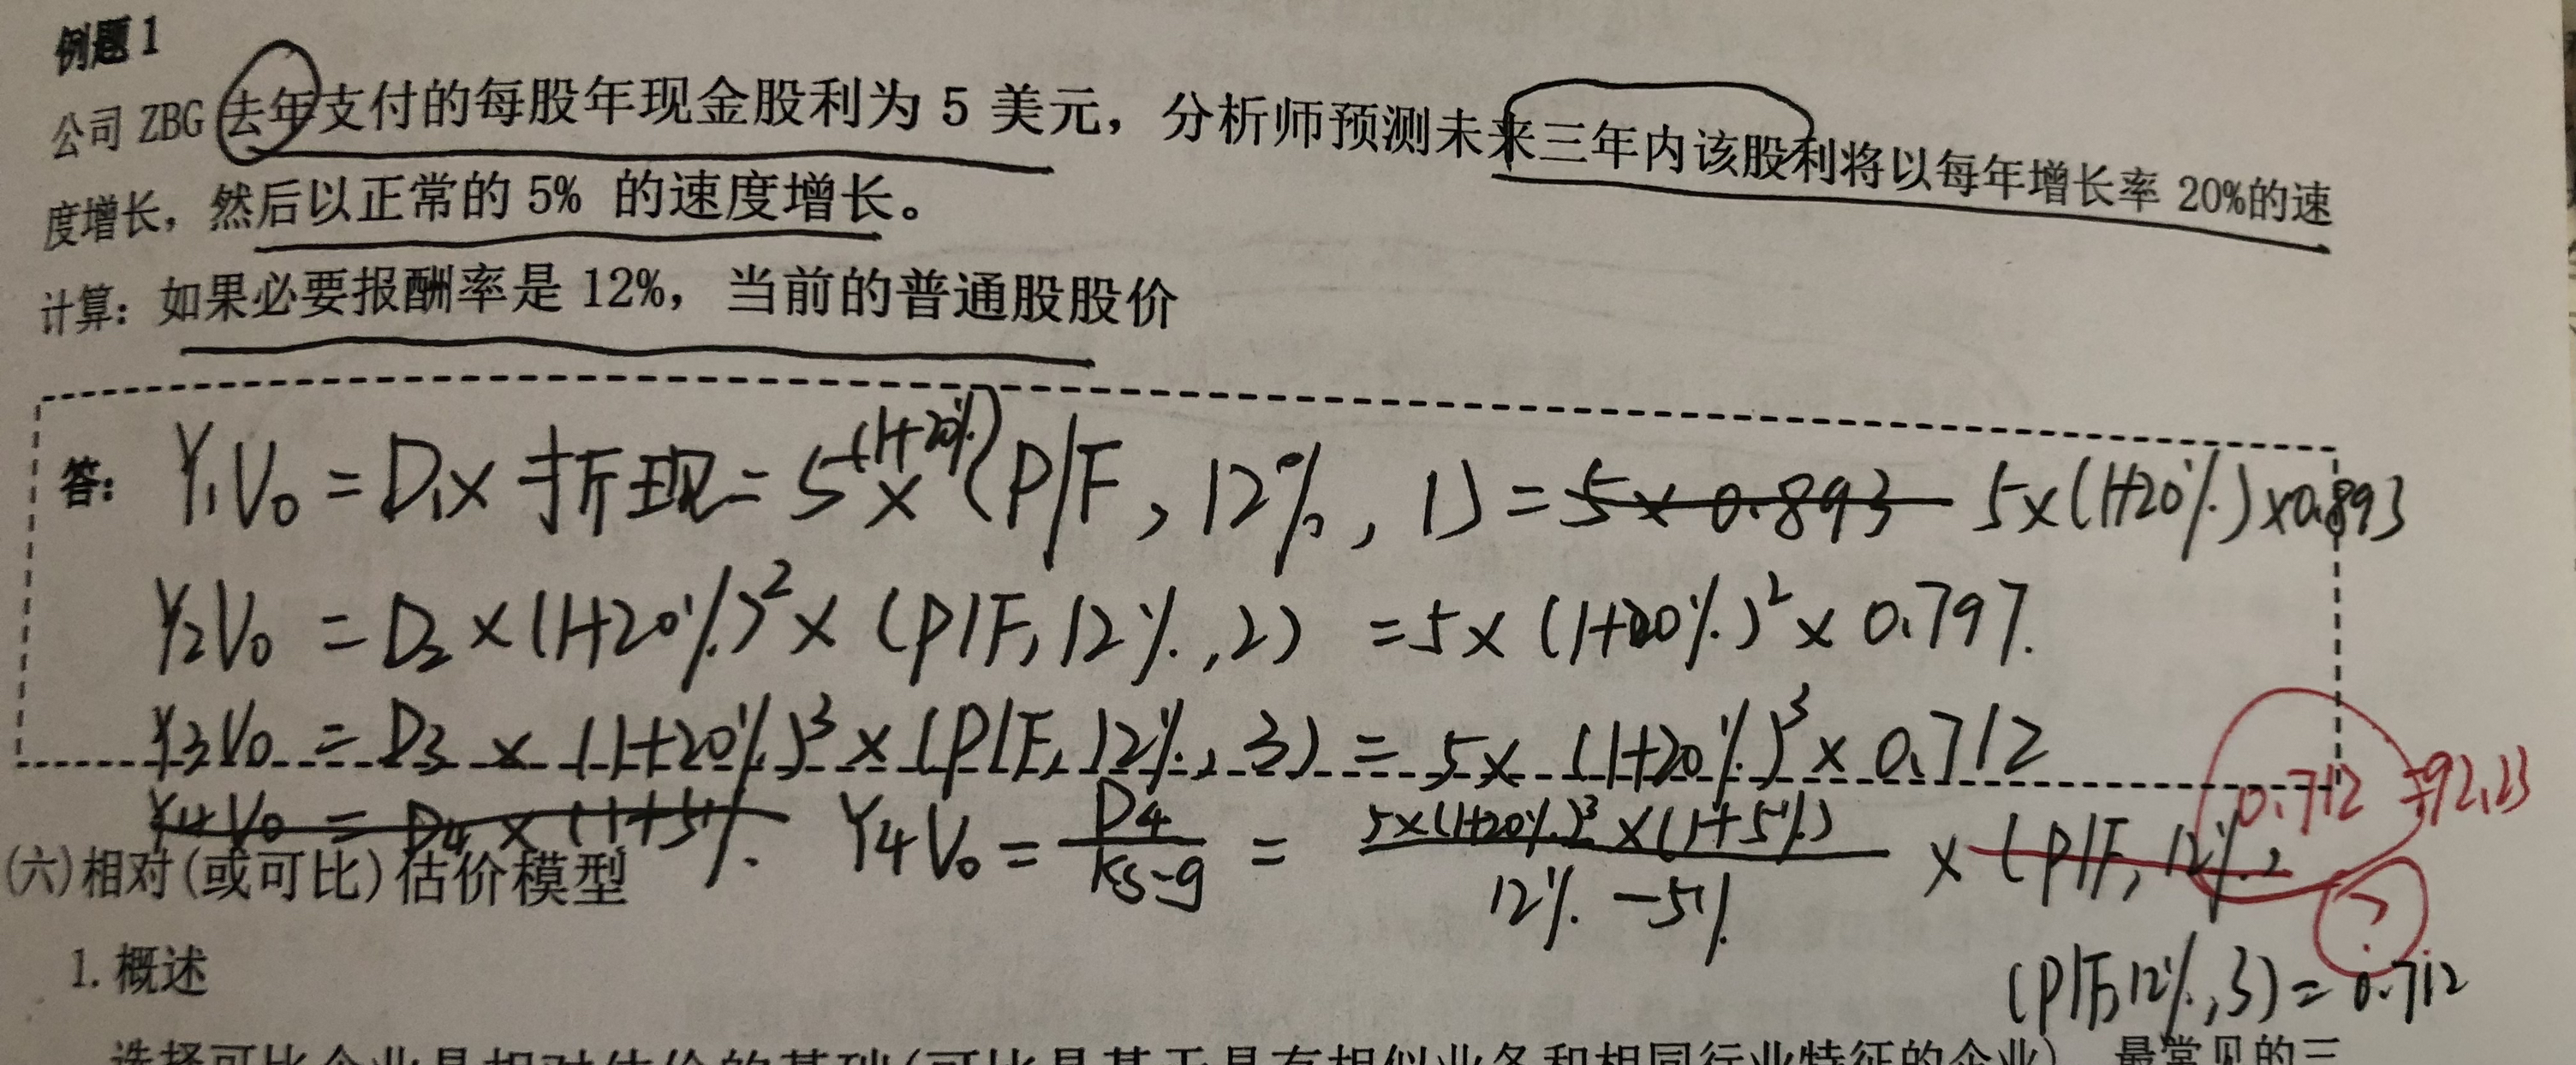 例题1
公司 ZBG 去年支付的每股年现金股利为 5 美元，分析师预测未来三年内该股利将以每年增长率 20%的速
度增长，然后以正常的 5% 的速度增长。
计算：如果必要报酬率是 12%，当前的普通股股价
答：Y₁V₀ = D₁× 折现 = 5 ×(1+20%) (P/F, 12%, 1) = 5×0.893 5×(1+20%)×0.893
Y₂V₀ = D₂ ×(1+20%)² × (P/F, 12%, 2) = 5× (1+20%)² × 0.797.
Y₃V₀ = D₃ × (1+20%)³ × (P/F, 12%, 3) = 5× (1+20%)³ × 0.712
Y₄V₀ = D₄ × (1+5%. Y₄V₀ = D₄/(Ks-g) = 5×(1+20%)³×(1+5%)/(12%-5%) × (P/F, 12%.2 0.712 =92.23
?
(P/F,12%,3) = 0.712
(六)相对(或可比)估价模型
1. 概述
选择可比企业是相对估价的基础(可比是基于具有相似业务和相同行业特征的企业)。最常见的三